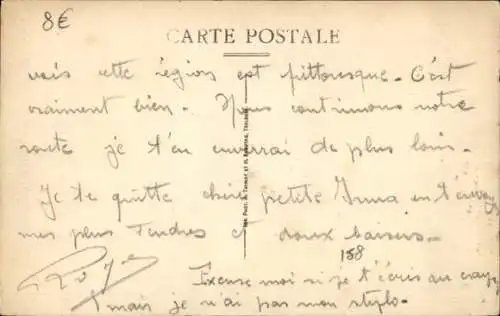 8€
CARTE POSTALE
vois cette région est pittoresque. C'est
vraiment bien. Nous continuons notre
route je t'en enverrai de plus loin.
Je te quitte chère petite Irma en t'envoy
mes plus tendres et doux baisers.
158
Excuse moi si je t'écris au crayon
mais je n'ai pas mon stylo.